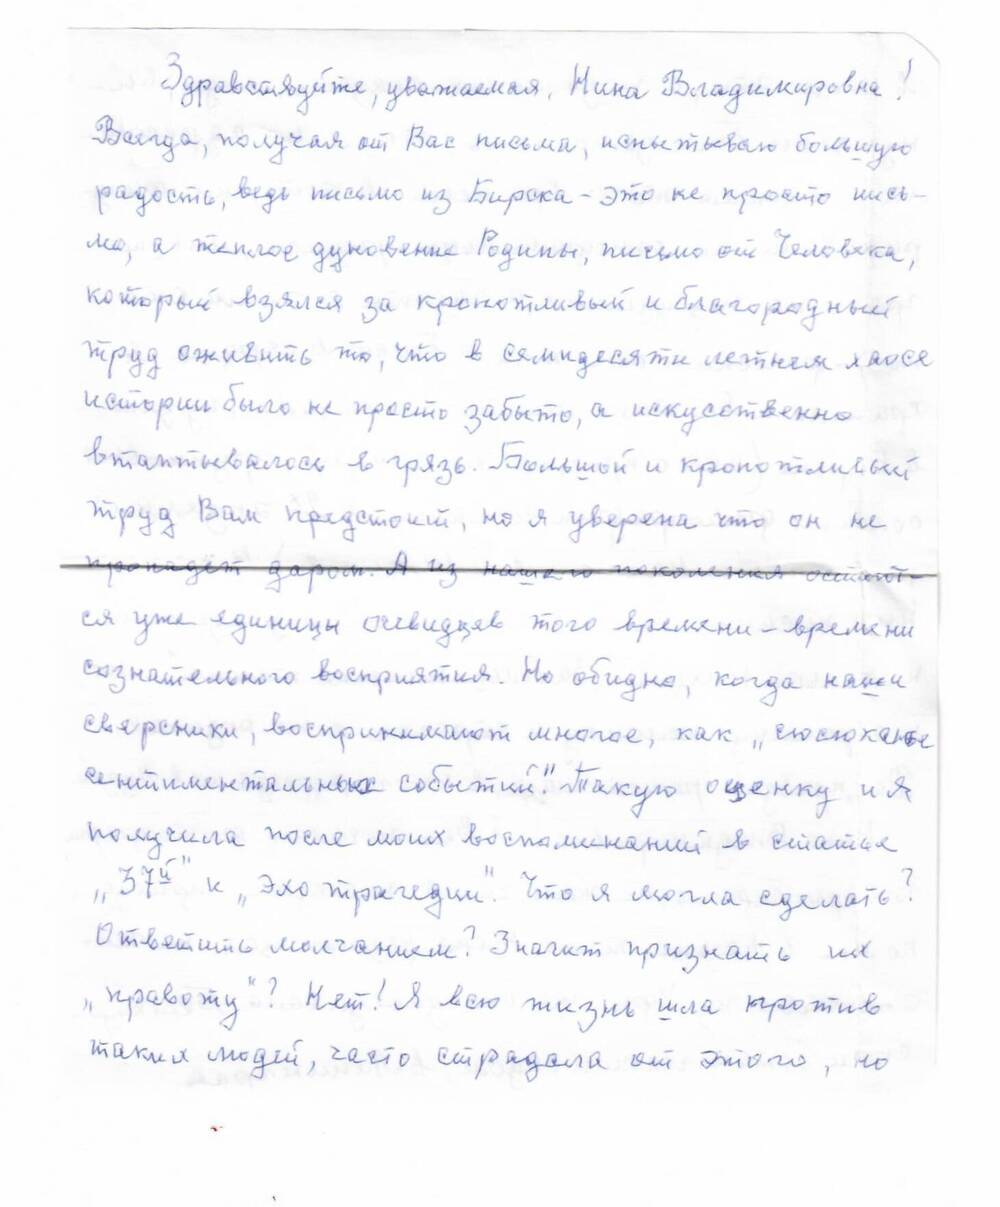 Здравствуйте, уважаемая, Нина Владимировна!
Всегда, получая от Вас письма, испытываю большую
радость, ведь письмо из Бирска – это не просто пись-
мо, а теплое дуновение Родины, письмо от Человека,
который взялся за кропотливый и благородный
труд оживить то, что в семидесяти летнем хаосе
истории было не просто забыто, а искусственно
втаптывалось в грязь. Большой и кропотливый
труд Вам предстоит, но я уверена что он не
пропадёт даром. А из нашего поколения остают-
ся уже единицы очевидцев того времени – времени
сознательного восприятия. Но обидно, когда наши
сверсники, воспринимают многое, как „сюсюканье
сентиментальных событий". Такую оценку и я
получила после моих воспоминаний в статье
„37й" и „Эхо трагедии". Что я могла сделать?
Ответить молчанием? Значит признать их
„правоту"? Нет! Я всю жизнь шла против
таких людей, часто страдала от этого, но